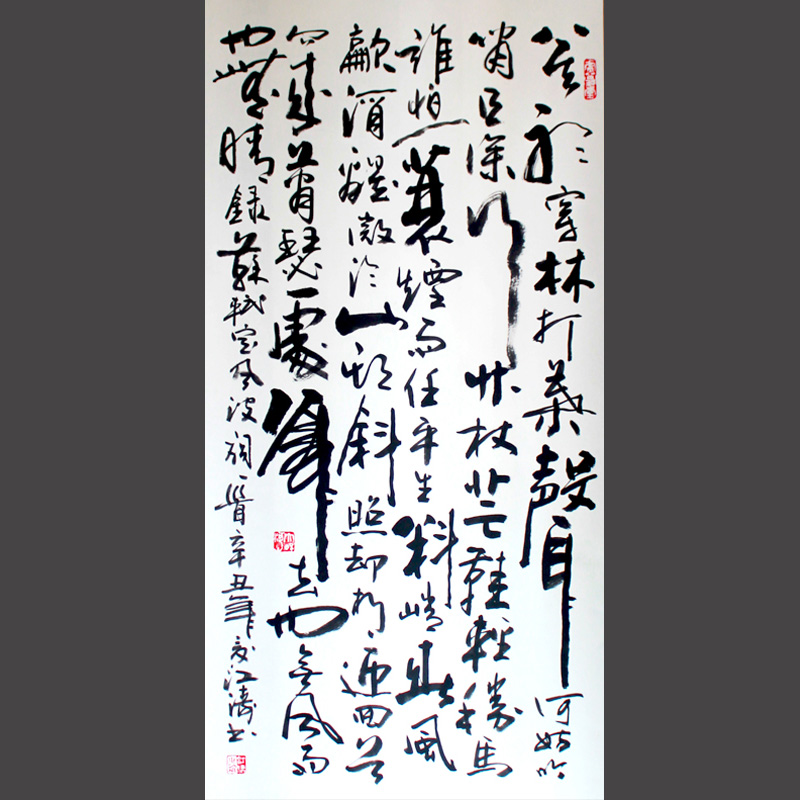 莫聽穿林打葉聲何妨吟
嘯且徐行竹杖芒鞋輕勝馬
誰怕一蓑煙雨任平生料峭春風
龡酒醒微冷山頭斜照却相迎回首
向來蕭瑟處歸去也無風雨
也無晴錄蘇軾定風波詞一首辛丑年夏江濤書